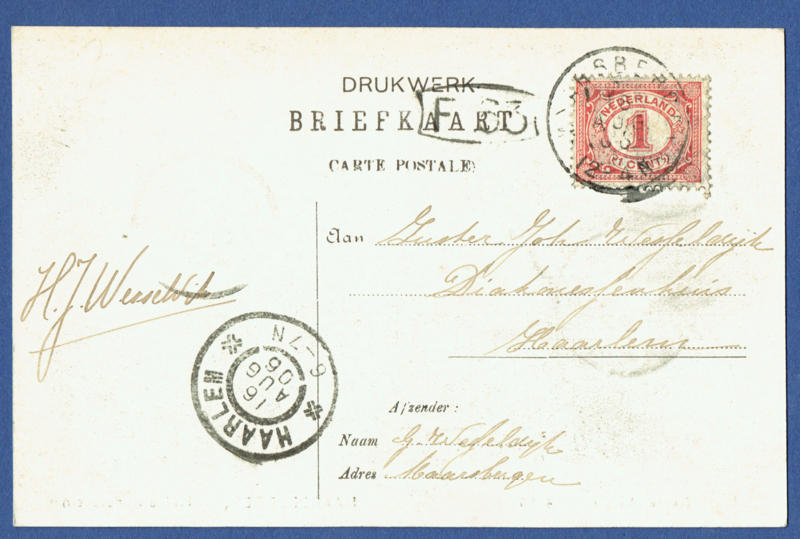 DRUKWERK
BRIEFKAART
CARTE POSTALE
MAARSBERGEN
12 4N
NEDERLAND
1
(1 CENT)
Aan Zuster Joh. Wesseldijk
Diakonessenhuis
Haarlem
H.J. Wesseldijk
HAARLEM
16
AUG
06
6-7N
Afzender:
Naam G. Wesseldijk
Adres Maarsbergen